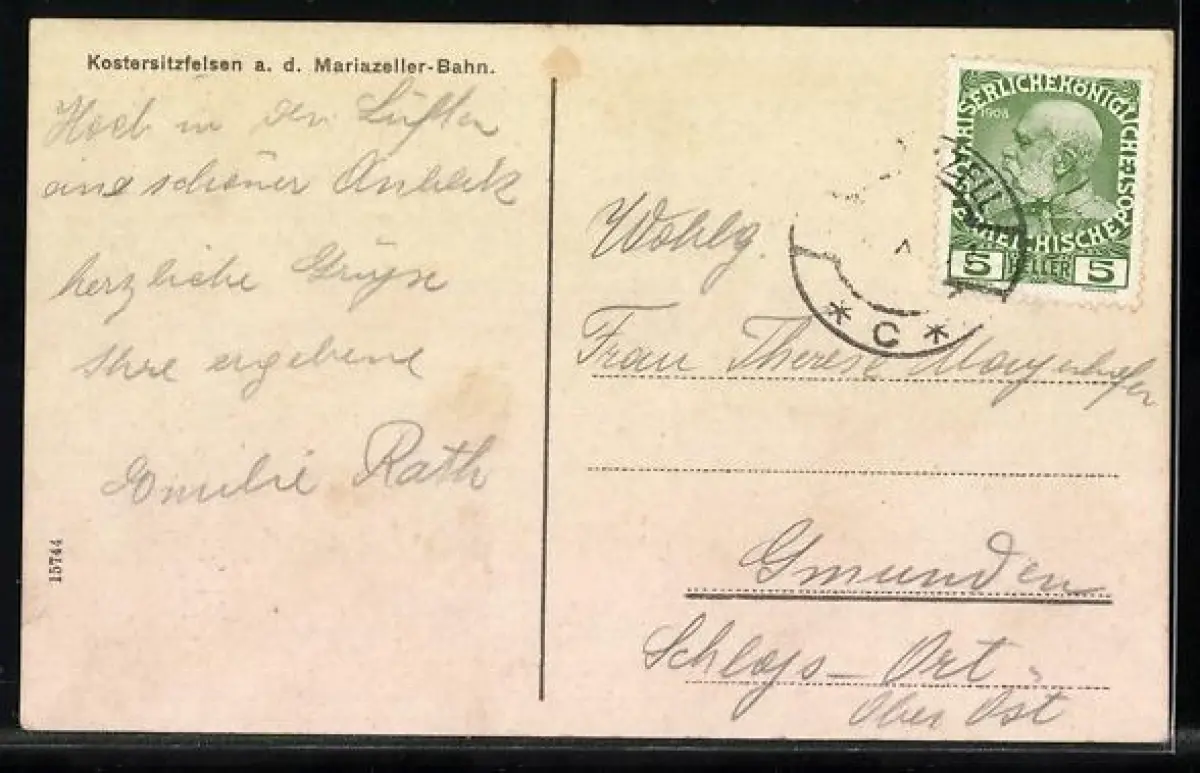 Kostersitzfelsen a. d. Mariazeller-Bahn.
Hoch in den Lüften
eine schöner Anblick
herzliche Grüße
Ihre ergebene
Emilie Rath
15744
KAISERLICHEKÖNIGLICHEPOST
1908
ÖSTERREICHISCHE
5 HELLER 5
ZELL
* C *
Wohlg.
Frau Therese Mayerhofer
Gmunden
Schloß-Ort
Ober Öst